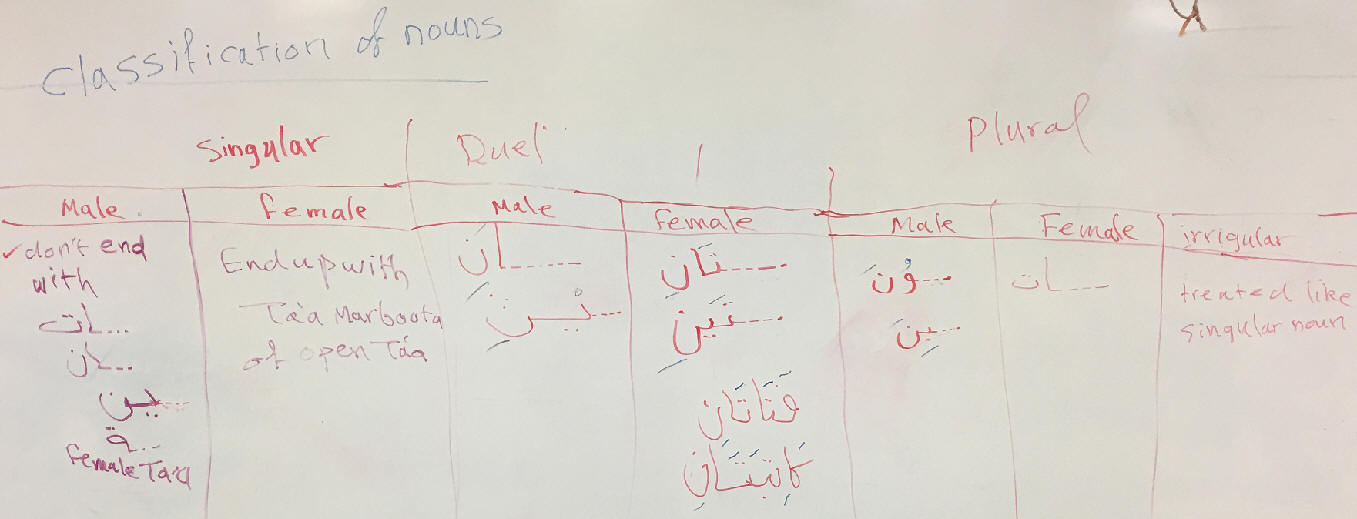 Classification of nouns
Singular
Duel
Plural
Male
female
Male
Female
Male
Female
irrigular
✓ don't end
with
...ات
...ان
...ين
...ة
female Taa
End up with
Taa Marboota
of open Taa
......َان
...َيْنِ
...تَانِ
...تَيْنِ
فَتَاتَانِ
كَاتِبَتَانِ
...ُوْنَ
...ِينَ
...ات
treated like
singular noun